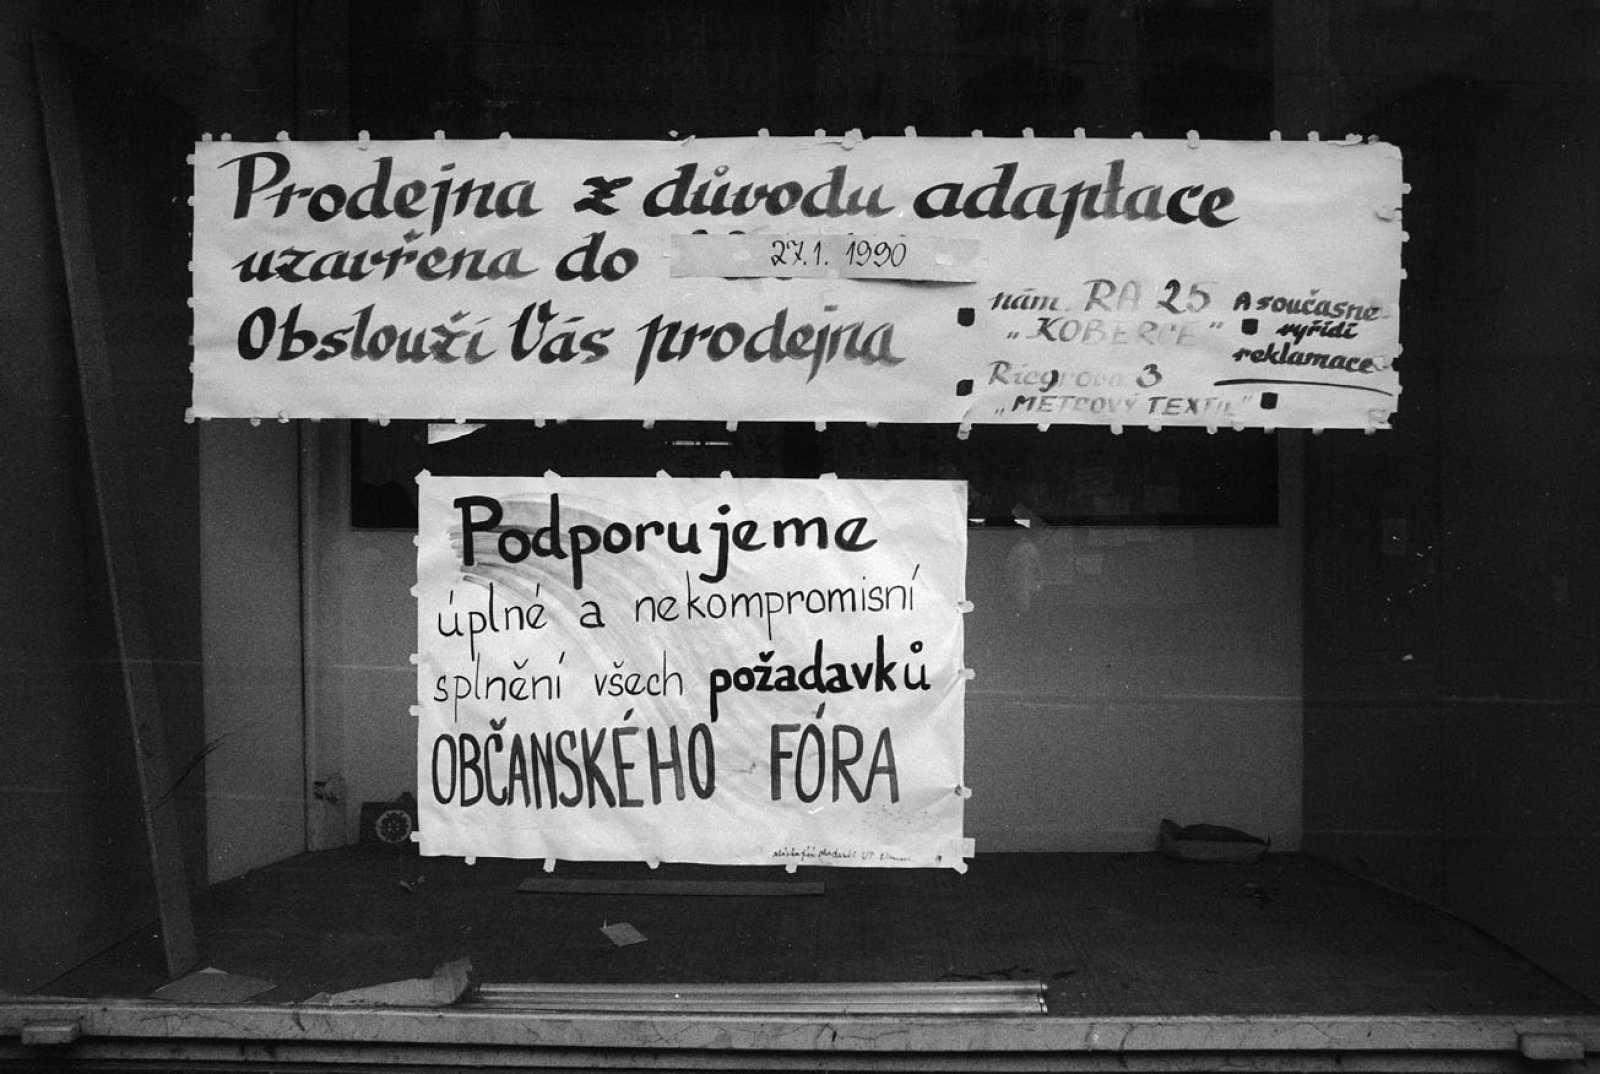 Prodejna z důvodu adaptace
uzavřena do 27.1. 1990
Obslouží Vás prodejna
nám. RA 25
„KOBERCE“
Riegrova 3
„METROVÝ TEXTIL“
A současně
vyřídí
reklamace
Podporujeme
úplné a nekompromisní
splnění všech požadavků
OBČANSKÉHO FÓRA